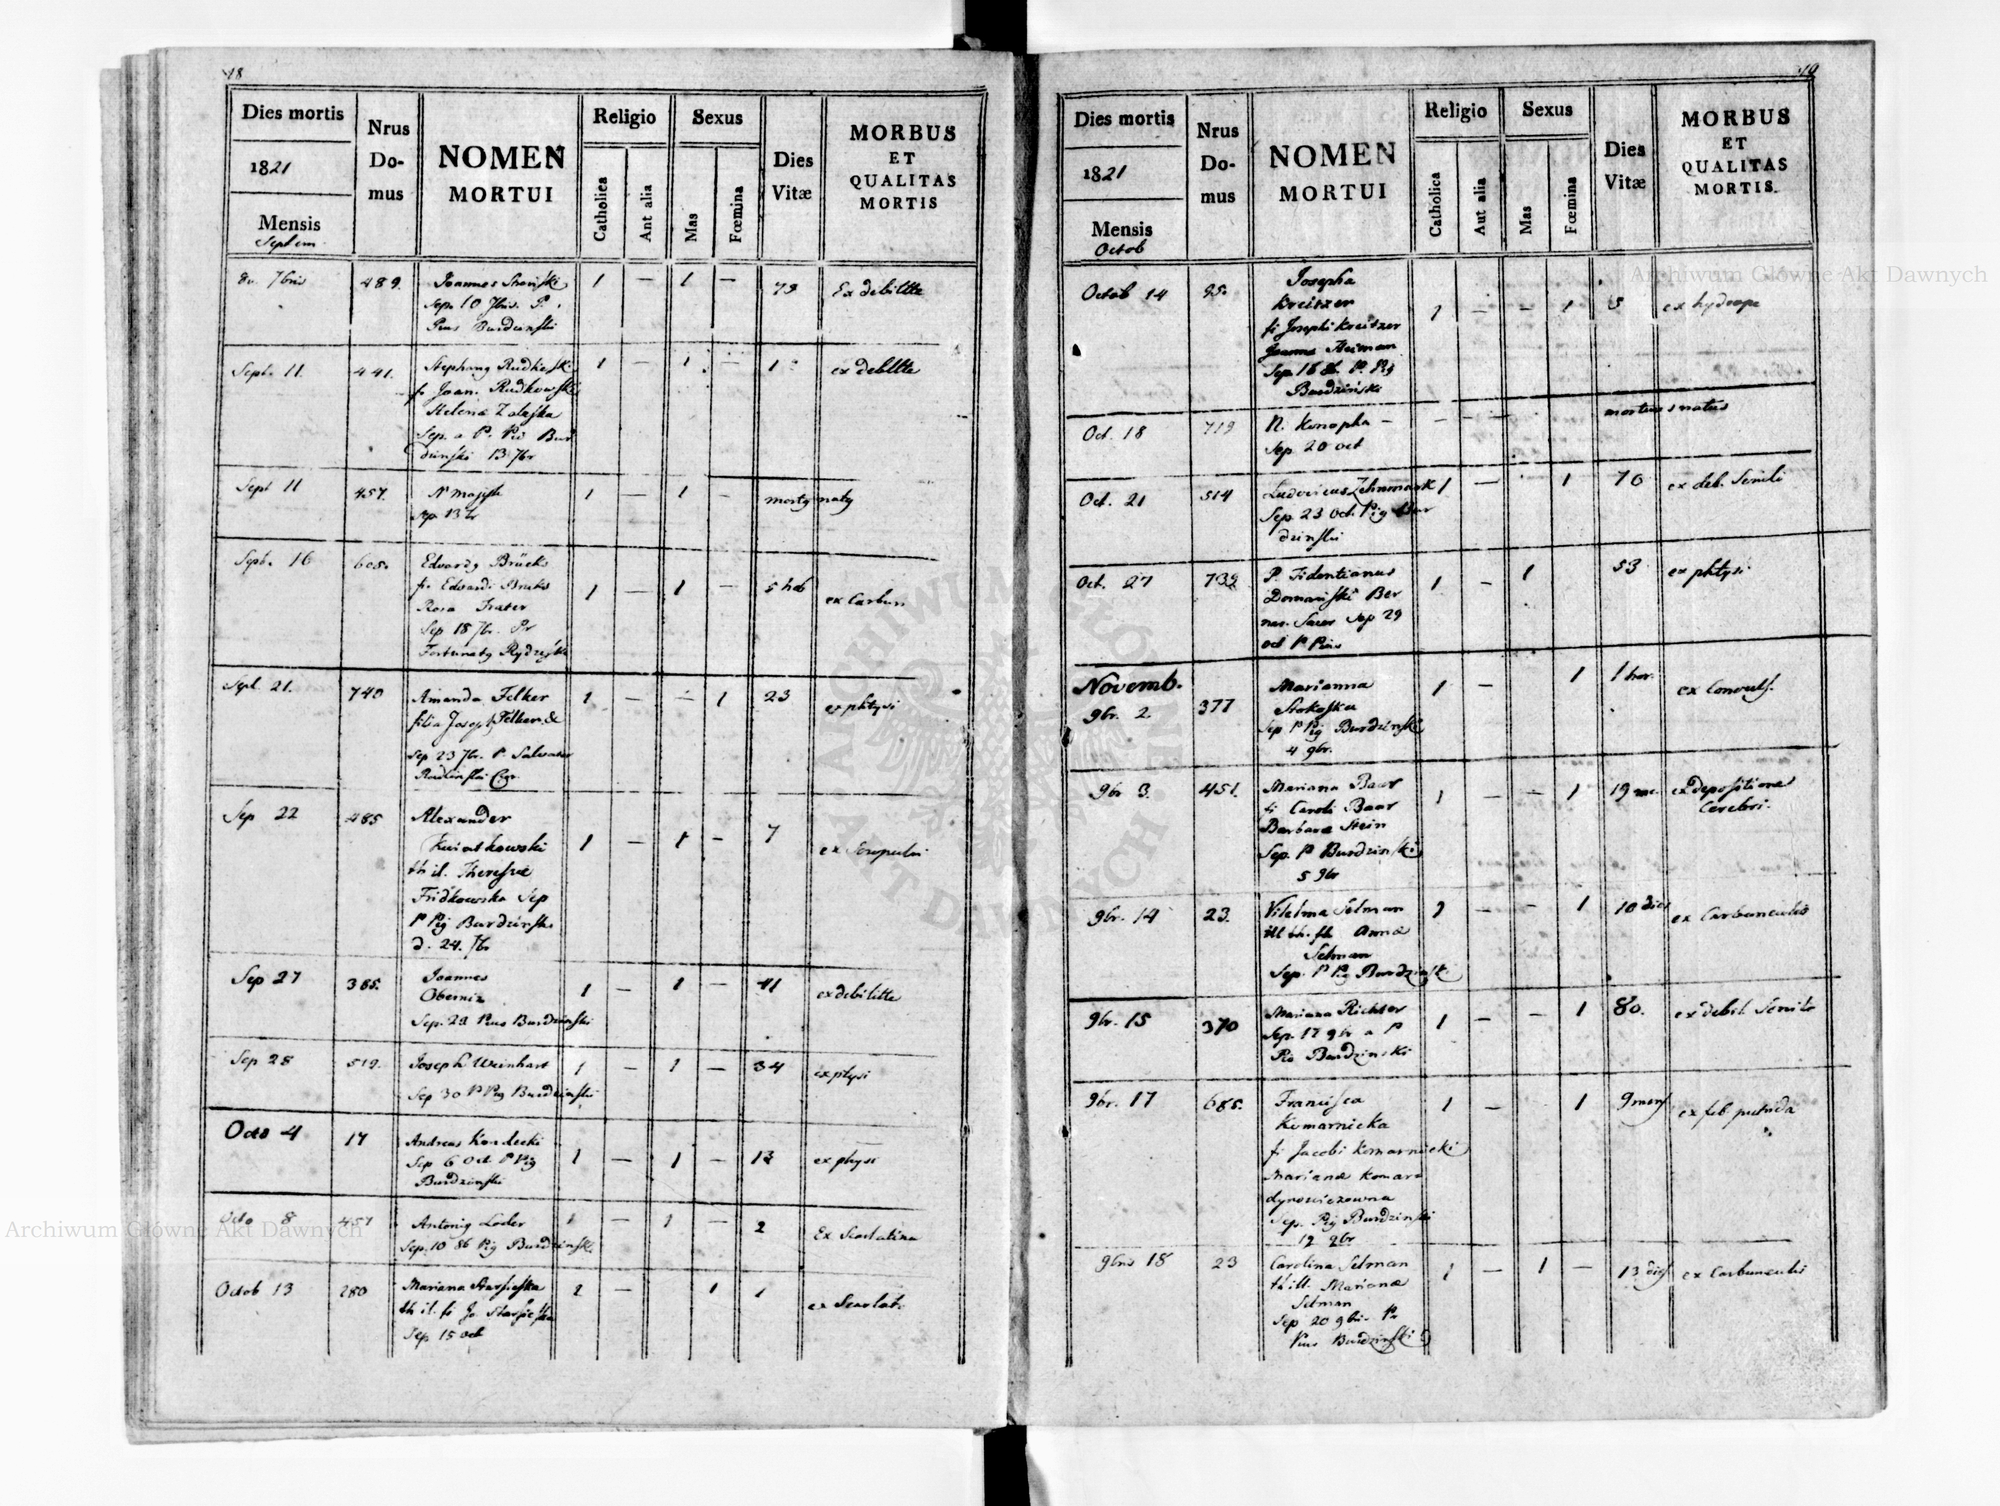 18
Dies mortis
1821
Mensis
Septem
Nrus
Do-
mus
NOMEN
MORTUI
Religio
Catholica
Aut alia
Sexus
Mas
Fœmina
Dies
Vitæ
MORBUS
ET
QUALITAS
MORTIS
7bris 489. Joannes 1 — 1 — 79 Ex debilitte
Sep. 10 7bris. P.
Pius Burdzinski
Sept. 11 441. Rudkowski 1 — 1 — 1 ex debiltte
fi Joan. Rudkowski
Helenæ Zaleska
Sep. a P. Pio Bur
dzinski 13 7br
Sept 11 457. N 1 — 1 — morty naty
Sep 13
Septb. 16 605. Edvardy Brücks 1 — 1 — 5 heb ex Carbun
fi. Edvardi Brucks
Rosa Frater
Sep 18 7br. Pr
Fortunaty
Sept. 21. 740 Amanda Felker 1 — — 1 23 ex phtysi
filia Joseph Felker &
Sep 23 7br. P Salvator
Sep 22 485 Alexander
Kwiatkowski 1 — 1 — 7 ex Scropulis
th il. Theresiæ
Fridkowska Sep
P Pig Burdzinski
d. 24. 7br
Sep 27 385. Joannes
Oberniz 1 — 1 — 41 ex debilitte
Sep. 29 Pius Burdzinski
Sep 28 519. Joseph Weinhart 1 1 — 34 ex ptysi
Sep 30 P Pig Burdzinski
Octo 4 17 Andreas Kordecki
Sep 6 Oct P Pig 1 — 1 — 13 ex physi
Burdzinski
Octo 8 457 Antonig Loder 1 — 1 — 2 Ex Scarlatina
Sep. 10 8b Pig Burdzinski
Octob 13 280 Mariana 1 — 1 1 ex Scarlati
th il. fi Jo.
Sep 15 oct
19
Dies mortis
1821
Mensis
Octob
Nrus
Do-
mus
NOMEN
MORTUI
Religio
Catholica
Aut alia
Sexus
Mas
Fœmina
Dies
Vitæ
MORBUS
ET
QUALITAS
MORTIS.
Octob 14 95. Josepha
Kreitzer 1 — — 1 5 ex hydrope
fi Josephi Kreitzer
Joanna Heiman
Sep. 16 8b. P. Pig
Burdzinski
Oct. 18 719 N. Konopka — — — — mortuus natus
Sep 20 oct
Oct. 21 514 Ludovicus Zehnmark 1 — 1 70 ex deb. Senili
Sep. 23 Oct. Pig Bur
dzinski
Oct. 27 739 P. Fidentianus 1 — 1 53 ex phtysi
Domanski Ber
nar. Sacer Sep 29
oct P Pius
Novemb.
9br. 2. 377 Marianna 1 — 1 1 hor. ex Convuls.
Stokoska
Sep P Pig Burdzinski
4 9br.
9br 3. 451. Mariana Baar 1 — — 1 19 me. ex depositione
Cerebri.
fi Caroli Baar
Barbaræ Stein
Sep. P Burdzinski
5 9br
9br. 14 23. Vilelma Selman 1 — — 1 10 dies ex Carbunculis
ill th. fil Annæ
Selman
Sep. P Pig Burdzinski
9br. 15 370 Mariana Richter 1 — — 1 80. ex debil. Senile
Sep. 17 9br a P
Pio Burdzinski
9br. 17 685. Francisca 1 — 1 9 mens ex feb putrida
Komarnicka
fi Jacobi Komarnicki
Marianæ Komar
dynowiczowna
Sep. Pig Burdzinski
19 9br
9bris 18 23 Carolina Selman 1 — 1 — 13 dies ex Carbunculis
th ill. Marianæ
Selman
Sep 20 9bri. Pr
Pius Burdzinski
Archiwum Główne Akt Dawnych
Archiwum Główne Akt Dawnych
ARCHIWUM GŁÓWNE AKT DAWNYCH